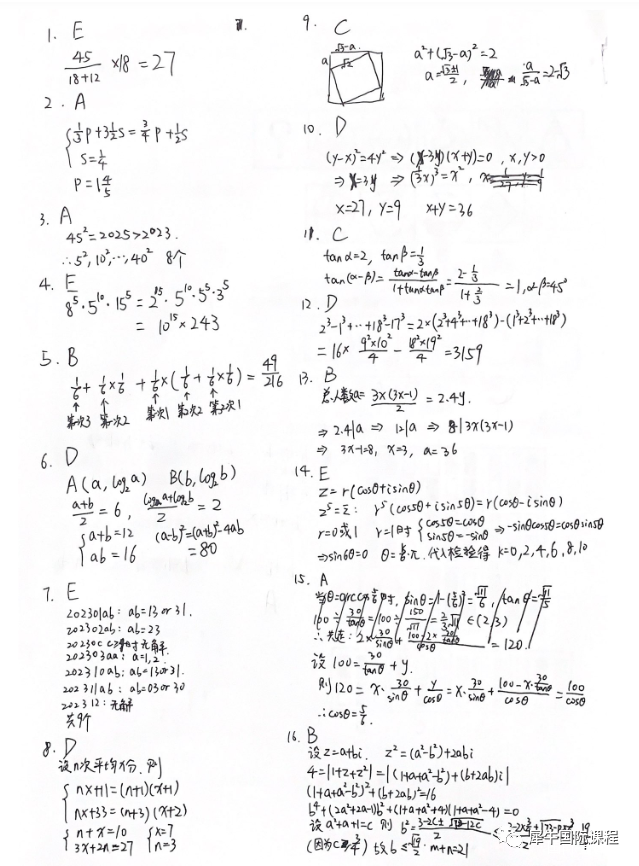 1. E
45/(18+12) ×18 = 27
2. A
{ 1/3 P + 3 1/2 S = 3/4 P + 1/2 S
S = 1/4
P = 1 4/5
3. A
45² = 2025 > 2023.
∴ 5², 10², …, 40² 8个
4. E
8⁵·5¹⁰·15⁵ = 2¹⁵·5¹⁰·5⁵·3⁵
= 10¹⁵ × 243
5. B
1/6 + 1/6 × 1/6 + 1/6 × (1/6 + 1/6 × 1/6) = 49/216
↑ ↑ ↑ ↑ ↑
第一次3 第一次2 第一次1 第二次2 第二次1
6. D
A(a, log₂a) B(b, log₂b)
(a+b)/2 = 6, (log₂a+log₂b)/2 = 2
{ a+b=12 (a-b)²=(a+b)²-4ab
ab = 16 = 80
7. E
202301ab: ab=13 or 31.
202302ab: ab=23
无解.
202303aa: a=1,2.
202310ab: ab=13 or 31.
202311ab: ab=03 or 30
202312: 无解
共9个
8. D
设n次平均x分. 则
{ nx+11=(n+1)(x+1)
nx+33=(n+3)(x+2)
{ n+x=10 { x=7
3x+2n=27 n=3
9. C
√3-a
a √2
a²+(√3-a)²=2
a=(√3+1)/2, a/(√3-a)=2-√3
10. D
(y-x)²=4y² ⇒ (x-3y)(x+y)=0, x,y>0
⇒ x=3y ⇒ (1/3 x)³=x²,
x=27, y=9 x+y=36
11. C
tanα=2, tanβ=1/3
tan(α-β)=(tanα-tanβ)/(1+tanαtanβ)=(2-1/3)/(1+2/3)=1, α-β=45°
12. D
2³-1³+…+18³-17³=2×(2³+4³+…+18³)-(1³+2³+…+18³)
=16× 9²×10²/4 - 18²×19²/4 = 3159
13. B
总人数a= 3x(3x-1)/2 = 2.4y.
⇒ 2.4|a ⇒ 12|a ⇒ 8|3x(3x-1)
⇒ 3x-1=8, x=3, a=36
14. E
z=r(cosθ+isinθ)
z⁵=z̄: r⁵(cos5θ+isin5θ)=r(cosθ-isinθ)
r=0或1 r=1时 { cos5θ=cosθ sin5θ=-sinθ ⇒ -sinθcos5θ=cosθsin5θ
⇒ sin6θ=0 θ=k/6·π. 代入检验得 k=0,2,4,6,8,10
15. A
设 100= 30/tanθ + y.
则120= x· 30/sinθ + y/cosθ = x· 30/sinθ + (100-x·30/tanθ)/cosθ = 100/cosθ
∴cosθ=5/6.
16. B
设z=a+bi. z²=(a²-b²)+2abi
4=|1+z+z²|=|(1+a+a²-b²)+(b+2ab)i|
(1+a+a²-b²)²+(b+2ab)²=16
b⁴+(2a²+2a-1)b²+(1+a+a²+4)(1+a+a²-4)=0
设a²+a+1=c 则 b²=
m+n=21
犀牛国际课程